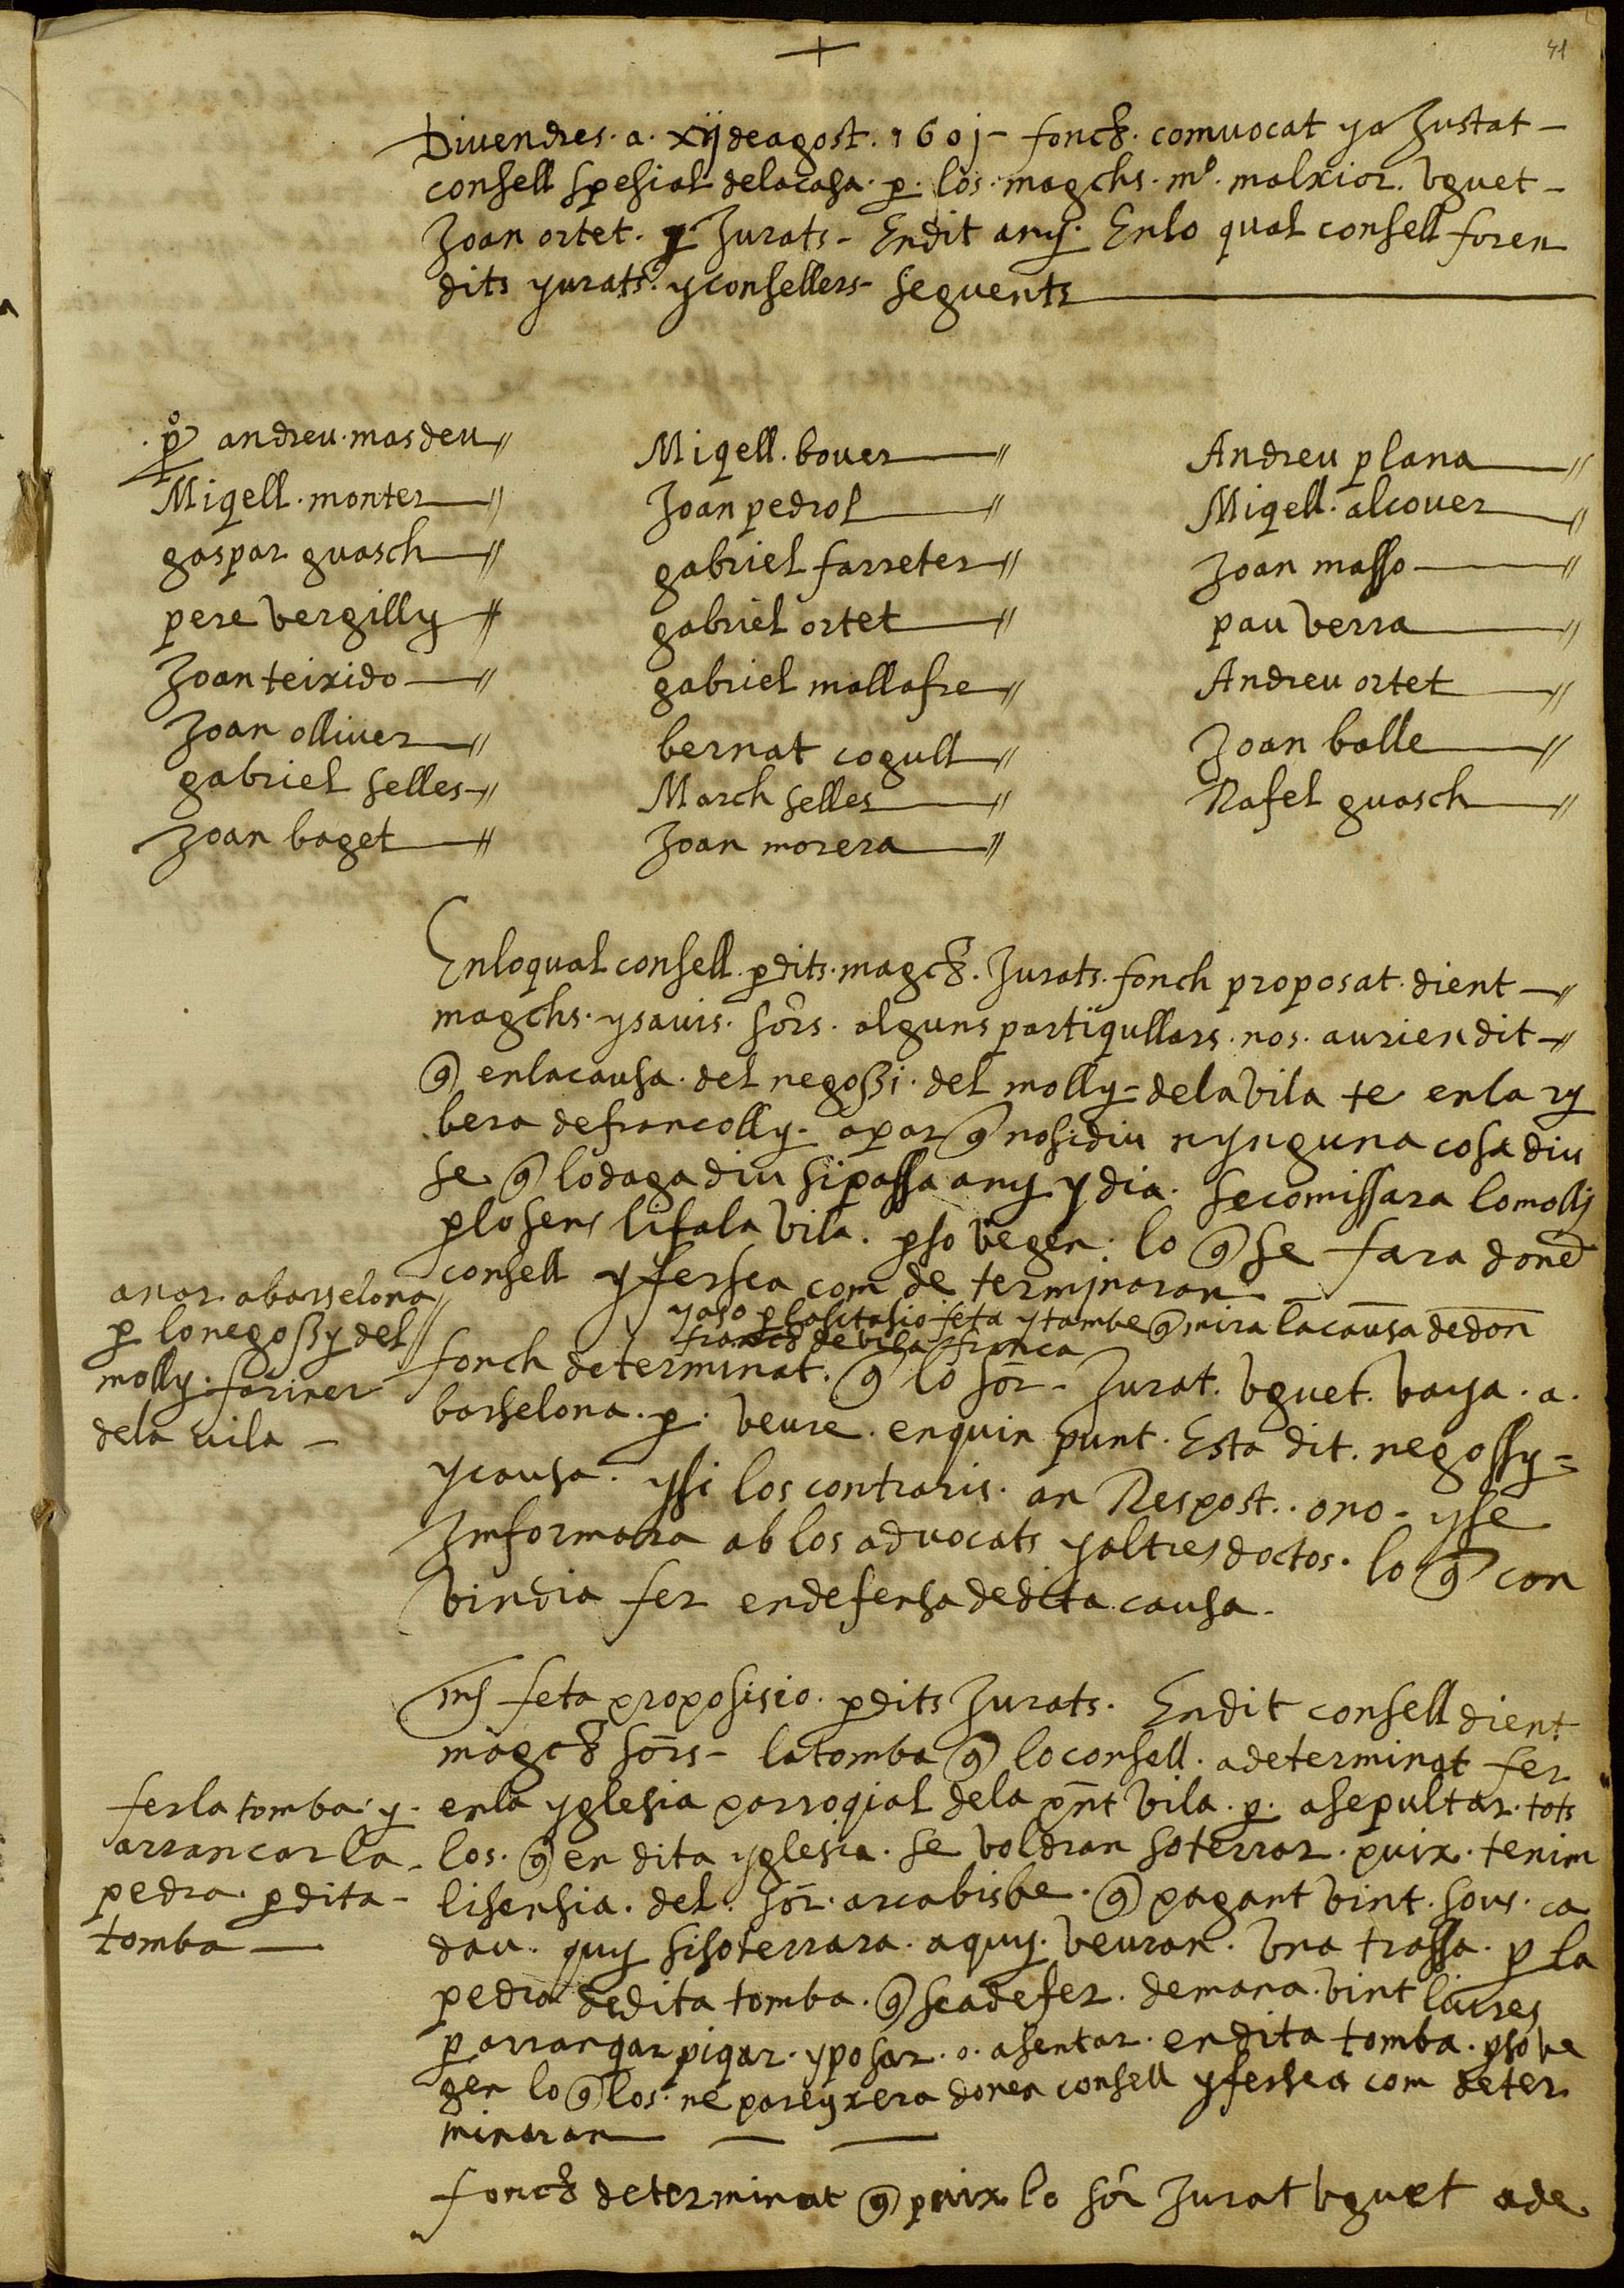 41
Divendres. a. xij de agost. 1601 - fonch. comvocat y a Justat -
consell spesial de la casa. p. los. magchs. mº. malxior. vguet -
Joan ortet. Jurats - En dit any. En lo qual consell foren
dits yurats. y consellers - seguents
pº andreu masdeu
Miqell. monter
gaspar guasch
pere vergilly
Joan teixido
Joan olliver
gabriel selles
Joan baget
Miqell. bover
Joan pedrol
gabriel farreter
gabriel ortet
gabriel mallafre
bernat cogull
March selles
Joan morera
Andreu plana
Miqell. alcover
Joan masso
pau verra
Andreu ortet
Joan balle
Rafel guasch
En lo qual consell. p dits. magchs. Jurats. fonch proposat. dient -
magchs. y savis. sors. alguns partiqullars. nos. aurien dit -
q en la causa. del negossi. del molly - de la vila te en la ry
bera de francolly. apar q no si diu nynguna cosa diu
se q lo daga diu si passa any y dia. se comissara lo molly
p lo sens li fa la vila. p so vegen. lo q se fara donen
consell y fersea com determinaran -
anar a barselona
p lo negossy del
molly. fariner
de la vila -
y aso p la sitasio feta y tambe q mira la causa de don
franch de vilafranca
fonch determinat. q lo sor - Jurat. vguet. vaya. a.
barselona. p. veure. en quin punt. Esta dit. negossy =
y causa. y si los contraris. an Respost. o no - y se
Imformara ab los advocats y altres doctos. lo q con
vindria fer en defensa de dita causa.
mes feta proposisio. p dits Jurats. En dit consell dient
magchs sors - la tomba q lo consell. a determinat fer
en la yglesia parroqial de la pnt vila. p. a sepultar. tots
los. q en dita yglesia. se voldran soterrar. puix. tenim
lisensia. del. sor. arcabisbe. q pagant vint. sous. ca
dau. quy si soterrara. aquy. veuran. vna trassa. p la
pedra de dita tomba. q sea de fer. demana. vint liures
p arranqar piqar. y posar. o. asentar. en dita tomba. p so ve
gen lo q los. ne pareyxera donen consell y fersea com deter
minaran
fer la tomba y.
arrancar la
pedra. p dita -
tomba -
fonch determinat q puix lo sor Jurat vguet a de